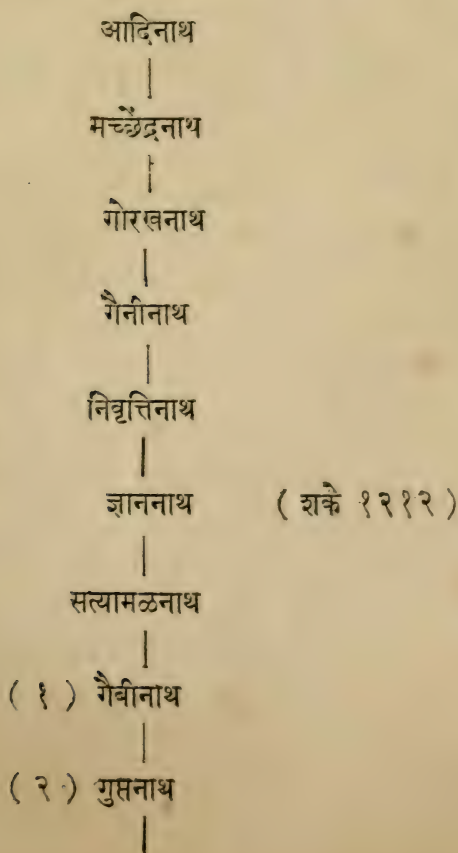 आदिनाथ
मच्छेंद्रनाथ
गोरखनाथ
गैनीनाथ
निवृत्तिनाथ
ज्ञाननाथ ( शके १२१२ )
सत्यामळनाथ
( १ ) गैबीनाथ
( २ ) गुप्तनाथ